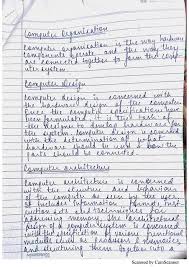 Computer Organisation
Computer organisation is the way hardware
components operate and the way they
are connected together to form the comp
uter system.
Computer Design
Computer design is concerned with
the hardware design of the computer
once the computer specifications have
been formulated it is the task of
the design to develop hardware for
the system computer design is concerned
with the determination of what
hardware should be used & how the
parts should be connected.
Computer architecture
Computer architecture is concerned
with the structure and behaviour
of the computer as seen by the user
It includes information formats, instr
uctions set and techniques for
addressing memory. The architectural
design of a computer system is concerned
with the specification of various functional
modules such as processors & memories
structuring them together into
Scanned by CamScanner